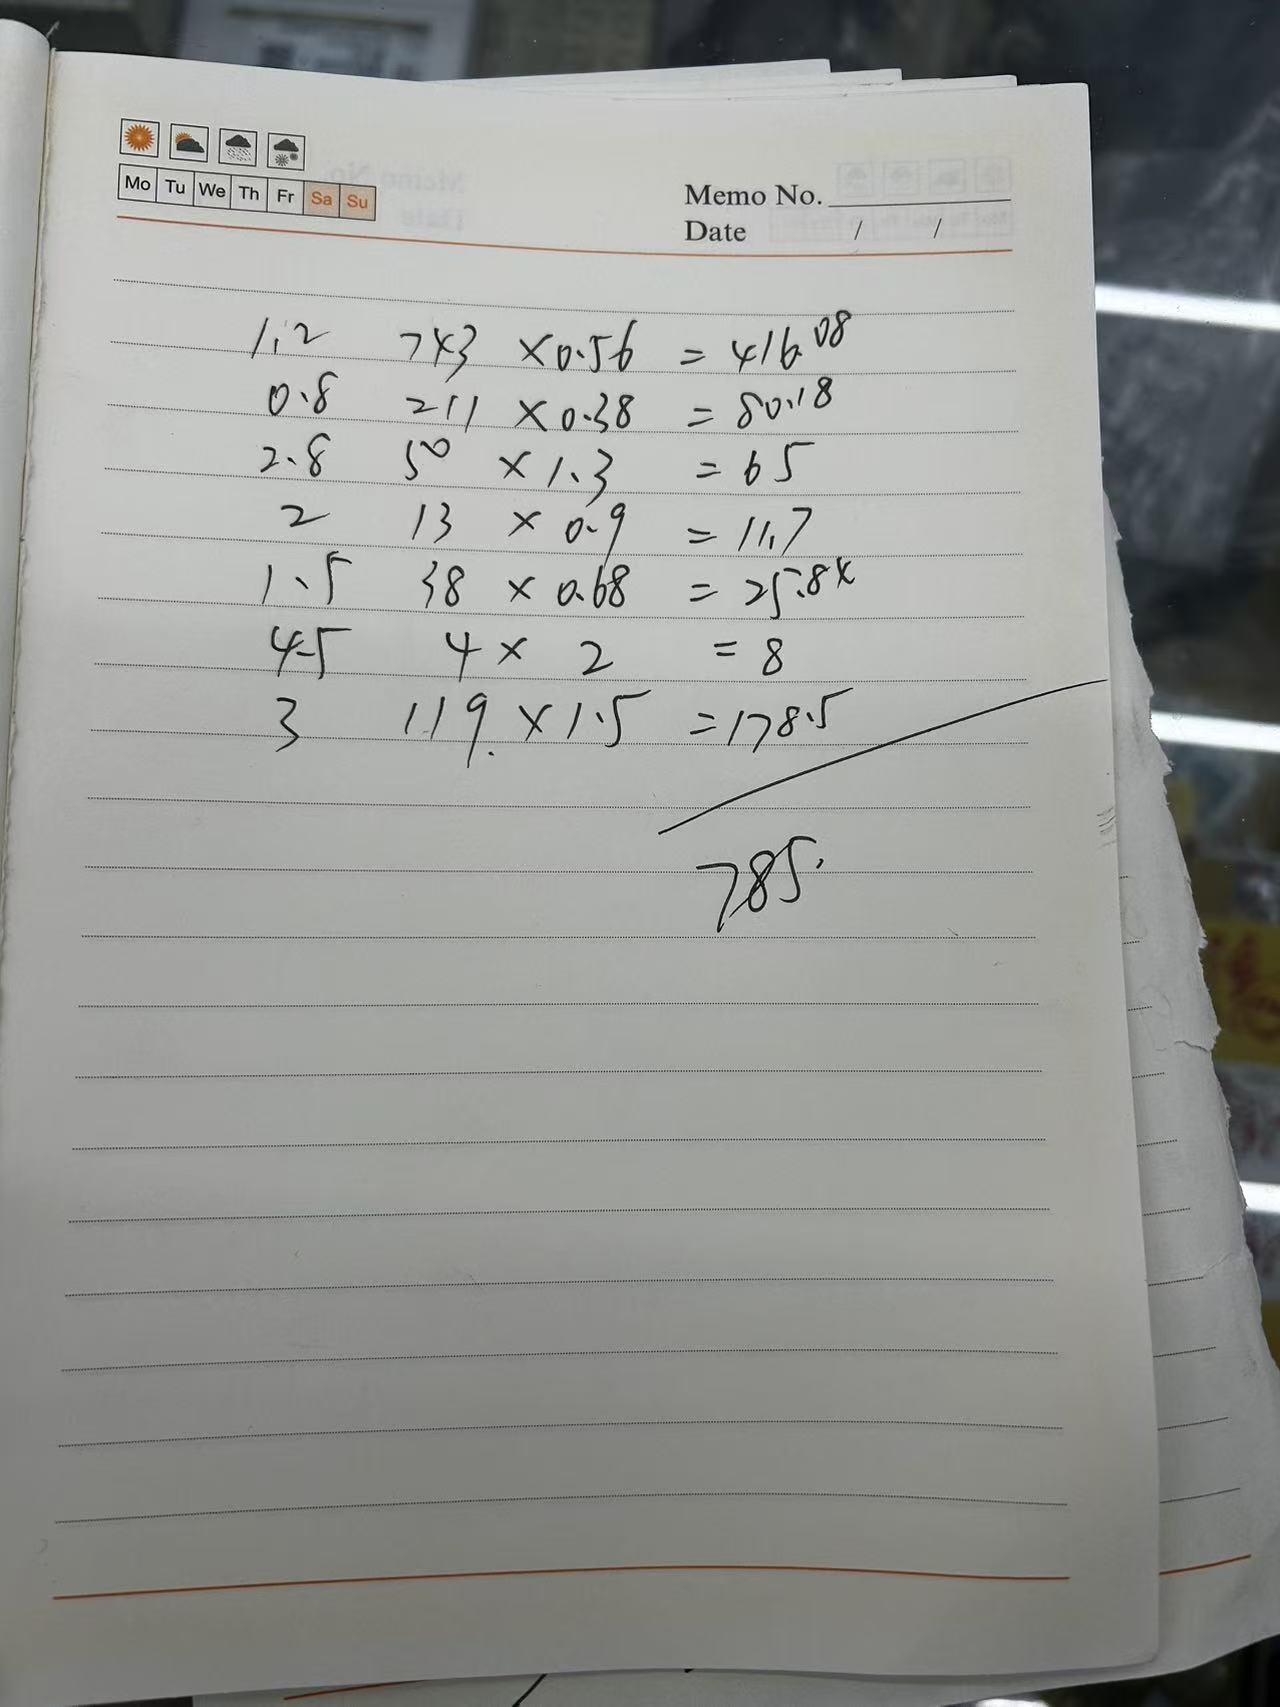 Mo Tu We Th Fr Sa Su
Memo No.
Date / /
1.2 743 ×0.56 = 416.08
0.8 211 ×0.38 = 80.18
2.8 50 ×1.3 = 65
2 13 × 0.9 = 11.7
1.5 38 × 0.68 = 25.84
4.5 4 × 2 = 8
3 119 × 1.5 = 178.5
785.